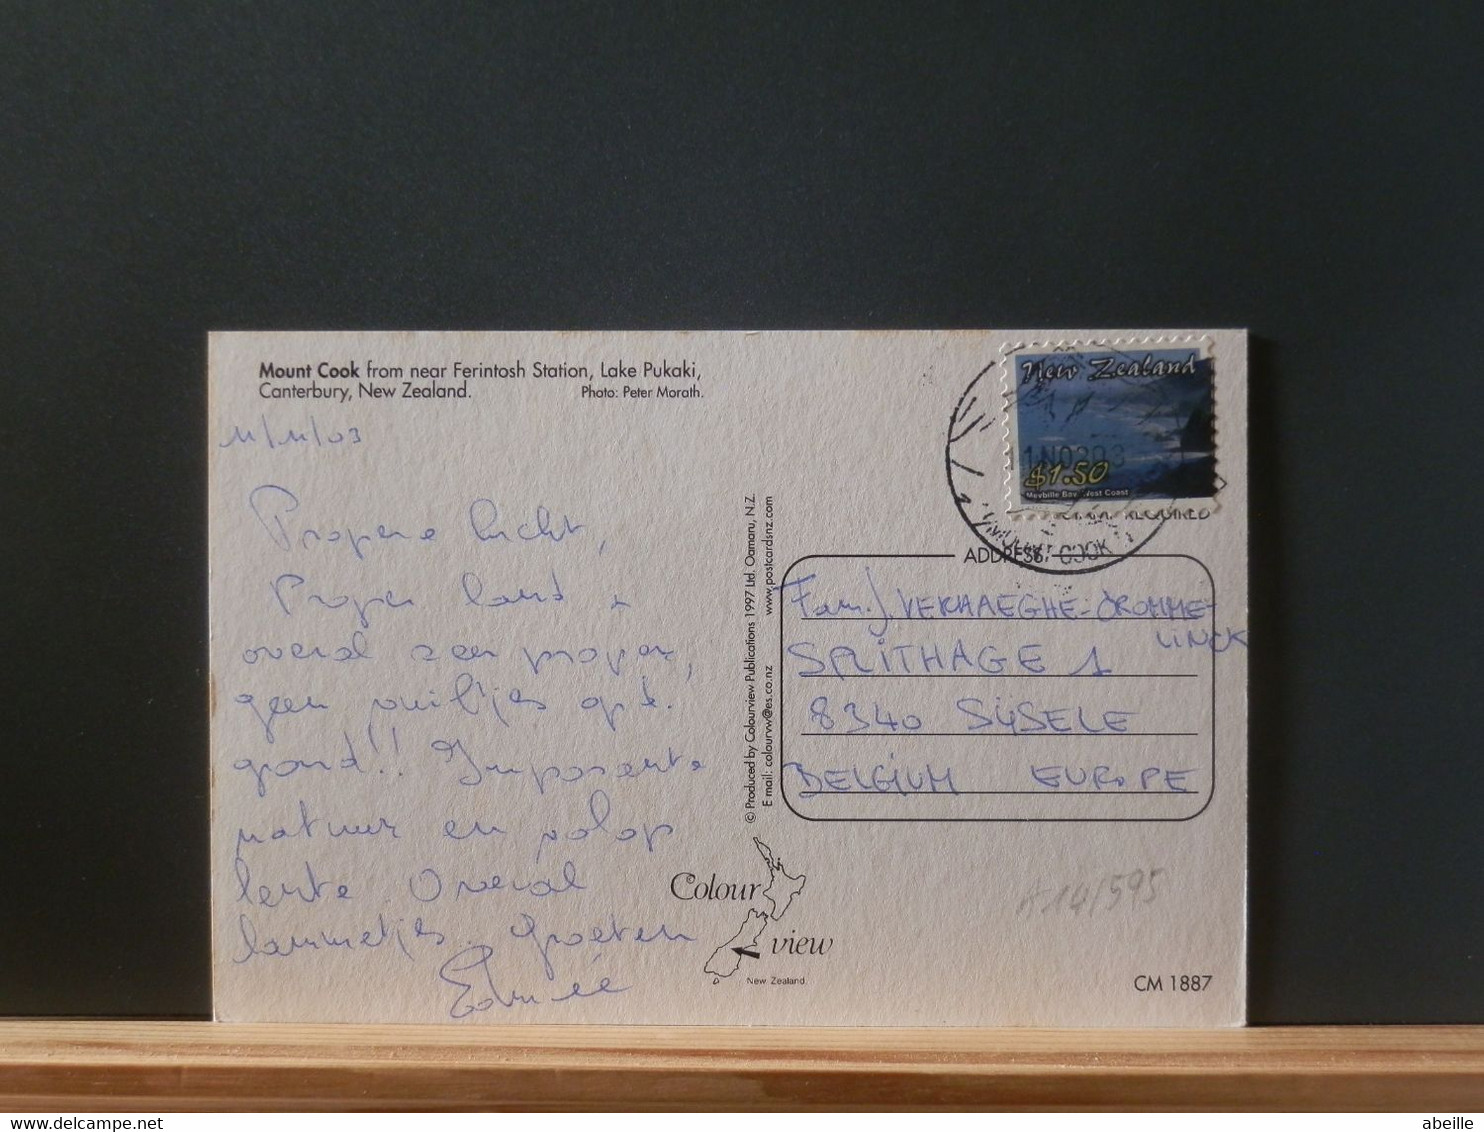 Mount Cook from near Ferintosh Station, Lake Pukaki,
Canterbury, New Zealand. Photo: Peter Morath.
11/11/03
Propere lucht,
Proper land
overal zeer proper,
geen vuiltjes op
grond!! Imposante
natuur en volop
lente. Overal
lammetjes. Groeten
© Produced by Colourview Publications 1997 Ltd. Oamaru, N.Z.
E mail: colourvw@es.co.nz www.postcardsnz.com
New Zealand
11NO203
$1.50
West Coast
REQUIRED
MOUNT COOK
ADDRESS
Fam. J. VERHAEGHE-CROMME-
LINCK
SPLITHAGE 1
8340 SIJSELE
BELGIUM EUROPE
A14/595
Colour
view
New Zealand
CM 1887
abeille